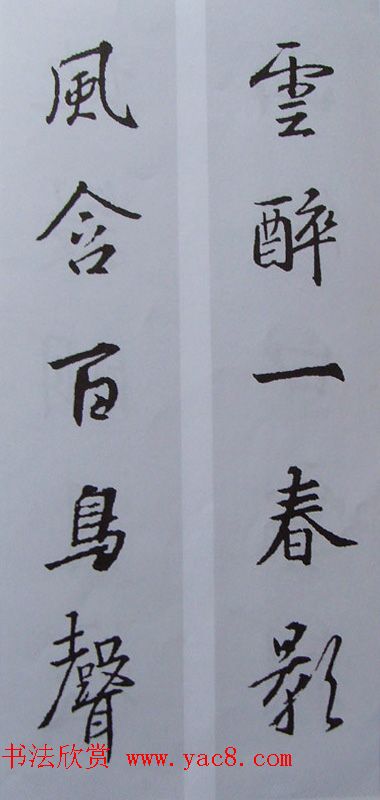 雲醉一春影
風含百鳥聲
书法欣赏 www.yac8.com